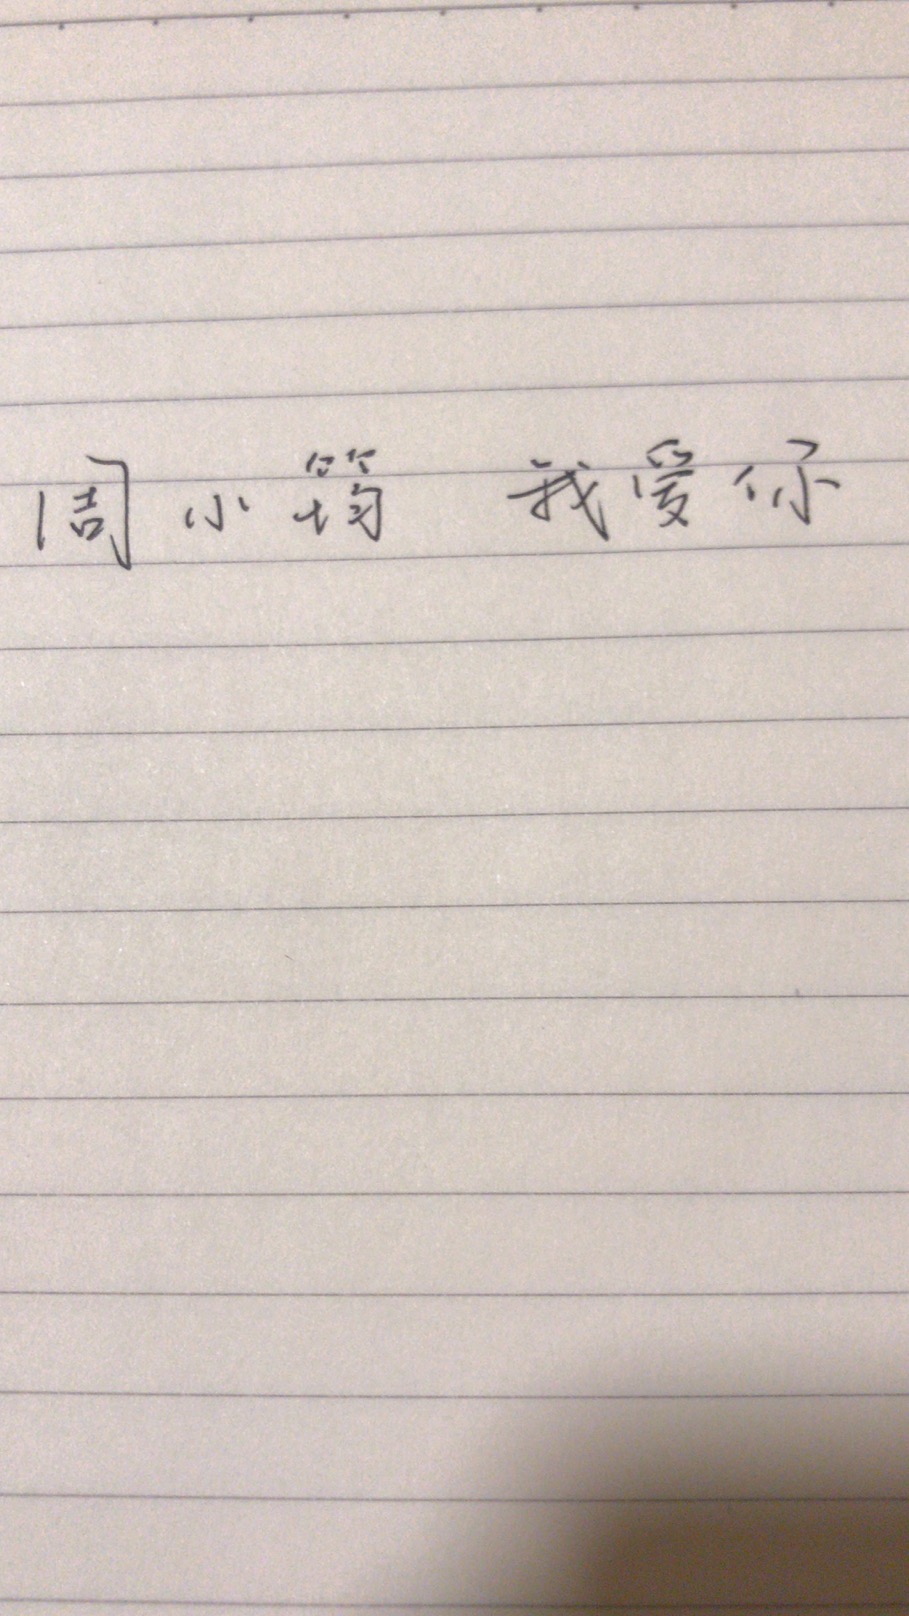 周小筠 我爱你